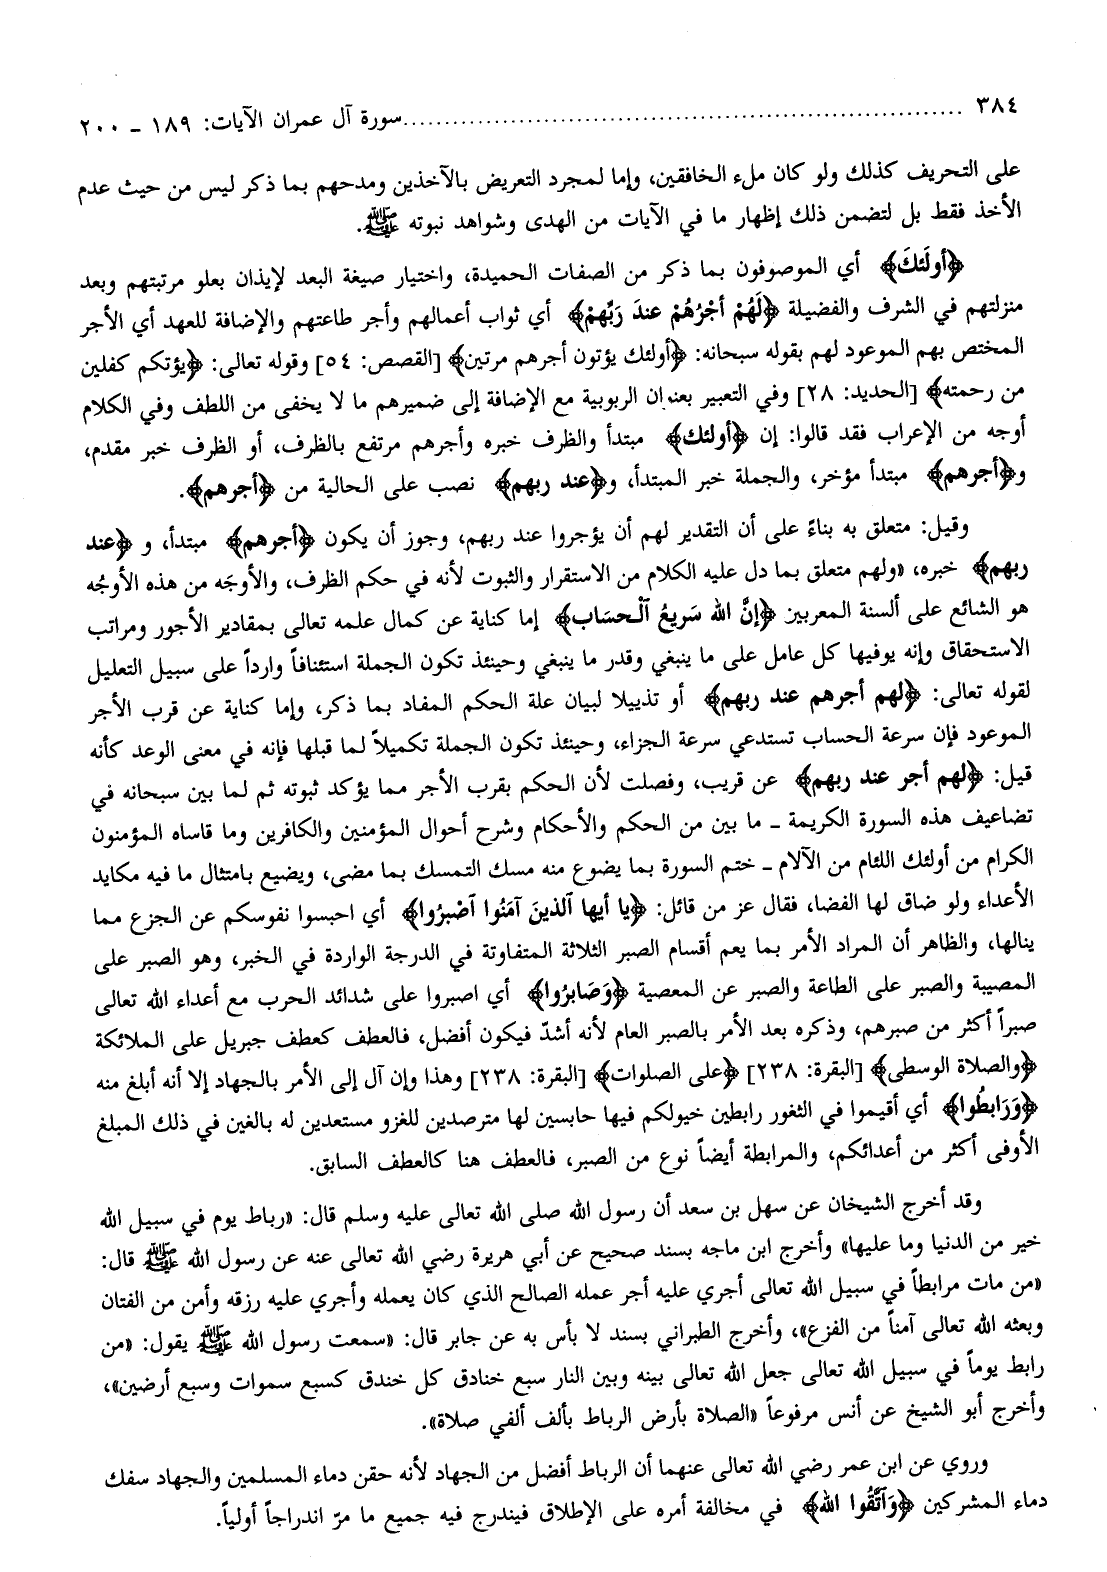 ٣٨٤ ............................................................ سورة آل عمران الآيات: ١٨٩ ـ ٢٠٠
على التحريف كذلك ولو كان ملء الخافقين، وإما لمجرد التعريض بالآخذين ومدحهم بما ذكر ليس من حيث عدم
الأخذ فقط بل لتضمن ذلك إظهار ما في الآيات من الهدى وشواهد نبوته ﷺ.
﴿أولَئكَ﴾ أي الموصوفون بما ذكر من الصفات الحميدة، واختيار صيغة البعد لإيذان بعلو مرتبتهم وبعد
منزلتهم في الشرف والفضيلة ﴿لَهُمْ أجْرُهُمْ عندَ رَبِّهمْ﴾ أي ثواب أعمالهم وأجر طاعتهم والإضافة للعهد أي الأجر
المختص بهم الموعود لهم بقوله سبحانه: ﴿أولئك يؤتون أجرهم مرتين﴾ [القصص: ٥٤] وقوله تعالى: ﴿يؤتكم كفلين
من رحمته﴾ [الحديد: ٢٨] وفي التعبير بعنوان الربوبية مع الإضافة إلى ضميرهم ما لا يخفى من اللطف وفي الكلام
أوجه من الإعراب فقد قالوا: إن ﴿أولئك﴾ مبتدأ والظرف خبره وأجرهم مرتفع بالظرف، أو الظرف خبر مقدم،
و﴿أجرهم﴾ مبتدأ مؤخر، والجملة خبر المبتدأ، و﴿عند ربهم﴾ نصب على الحالية من ﴿أجرهم﴾.
وقيل: متعلق به بناءً على أن التقدير لهم أن يؤجروا عند ربهم، وجوز أن يكون ﴿أجرهم﴾ مبتدأ، و ﴿عند
ربهم﴾ خبره، «ولهم متعلق بما دل عليه الكلام من الاستقرار والثبوت لأنه في حكم الظرف، والأوجَه من هذه الأوجُه
هو الشائع على ألسنة المعربين ﴿إنَّ الله سَريعُ ٱلْحسَاب﴾ إما كناية عن كمال علمه تعالى بمقادير الأجور ومراتب
الاستحقاق وإنه يوفيها كل عامل على ما ينبغي وقدر ما ينبغي وحينئذ تكون الجملة استئنافاً وارداً على سبيل التعليل
لقوله تعالى: ﴿لهم أجرهم عند ربهم﴾ أو تذييلا لبيان علة الحكم المفاد بما ذكر، وإما كناية عن قرب الأجر
الموعود فإن سرعة الحساب تستدعي سرعة الجزاء، وحينئذ تكون الجملة تكميلاً لما قبلها فإنه في معنى الوعد كأنه
قيل: ﴿لهم أجر عند ربهم﴾ عن قريب، وفصلت لأن الحكم بقرب الأجر مما يؤكد ثبوته ثم لما بين سبحانه في
تضاعيف هذه السورة الكريمة ـ ما بين من الحكم والأحكام وشرح أحوال المؤمنين والكافرين وما قاساه المؤمنون
الكرام من أولئك اللئام من الآلام ـ ختم السورة بما يضوع منه مسك التمسك بما مضى، ويضيع بامتثال ما فيه مكايد
الأعداء ولو ضاق لها الفضا، فقال عز من قائل: ﴿يا أيها ٱلذينَ آمَنُوا ٱصْبرُوا﴾ أي احبسوا نفوسكم عن الجزع مما
ينالها، والظاهر أن المراد الأمر بما يعم أقسام الصبر الثلاثة المتفاوتة في الدرجة الواردة في الخبر، وهو الصبر على
المصيبة والصبر على الطاعة والصبر عن المعصية ﴿وَصَابرُوا﴾ أي اصبروا على شدائد الحرب مع أعداء الله تعالى
صبراً أكثر من صبرهم، وذكره بعد الأمر بالصبر العام لأنه أشدّ فيكون أفضل، فالعطف كعطف جبريل على الملائكة
﴿والصلاة الوسطى﴾ [البقرة: ٢٣٨] ﴿على الصلوات﴾ [البقرة: ٢٣٨] وهذا وإن آل إلى الأمر بالجهاد إلا أنه أبلغ منه
﴿وَرَابطُوا﴾ أي أقيموا في الثغور رابطين خيولكم فيها حابسين لها مترصدين للغزو مستعدين له بالغين في ذلك المبلغ
الأوفى أكثر من أعدائكم، والمرابطة أيضاً نوع من الصبر، فالعطف هنا كالعطف السابق.
وقد أخرج الشيخان عن سهل بن سعد أن رسول الله صلى الله تعالى عليه وسلم قال: «رباط يوم في سبيل الله
خير من الدنيا وما عليها» وأخرج ابن ماجه بسند صحيح عن أبي هريرة رضي الله تعالى عنه عن رسول الله ﷺ قال:
«من مات مرابطاً في سبيل الله تعالى أجري عليه أجر عمله الصالح الذي كان يعمله وأجري عليه رزقه وأمن من الفتان
وبعثه الله تعالى آمناً من الفزع»، وأخرج الطبراني بسند لا بأس به عن جابر قال: «سمعت رسول الله ﷺ يقول: «من
رابط يوماً في سبيل الله تعالى جعل الله تعالى بينه وبين النار سبع خنادق كل خندق كسبع سموات وسبع أرضين»،
وأخرج أبو الشيخ عن أنس مرفوعاً «الصلاة بأرض الرباط بألف ألفي صلاة».
وروي عن ابن عمر رضي الله تعالى عنهما أن الرباط أفضل من الجهاد لأنه حقن دماء المسلمين والجهاد سفك
دماء المشركين ﴿وَٱتَّقُوا الله﴾ في مخالفة أمره على الإطلاق فيندرج فيه جميع ما مرّ اندراجاً أولياً.